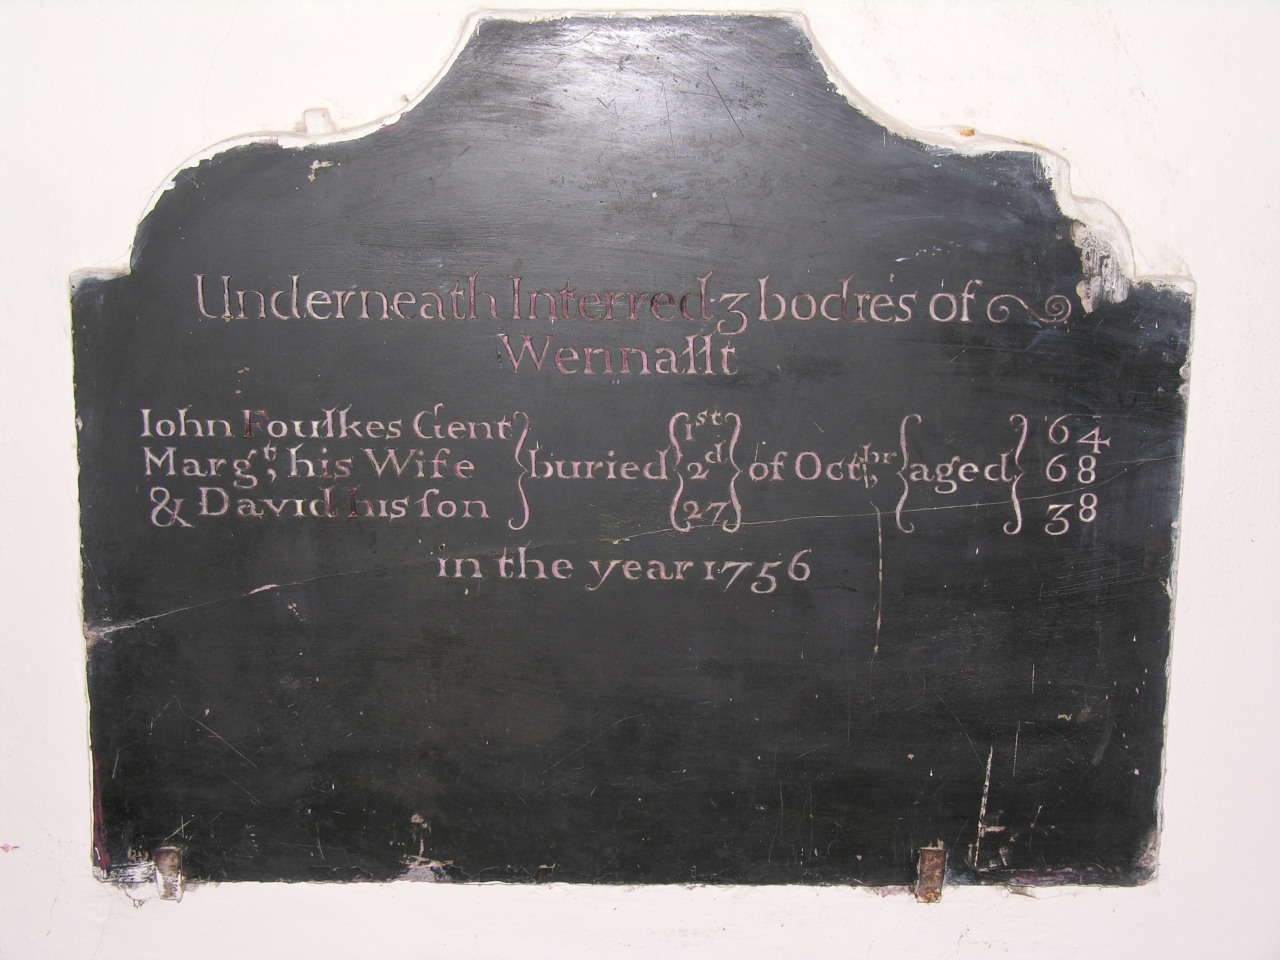 Underneath Interred 3 bodies of
Wennallt
Iohn Foulkes Gent } buried { 1st } of Octbr, { aged } 64
Margt, his Wife 2d 68
& David his ſon 27 38
in the year 1756